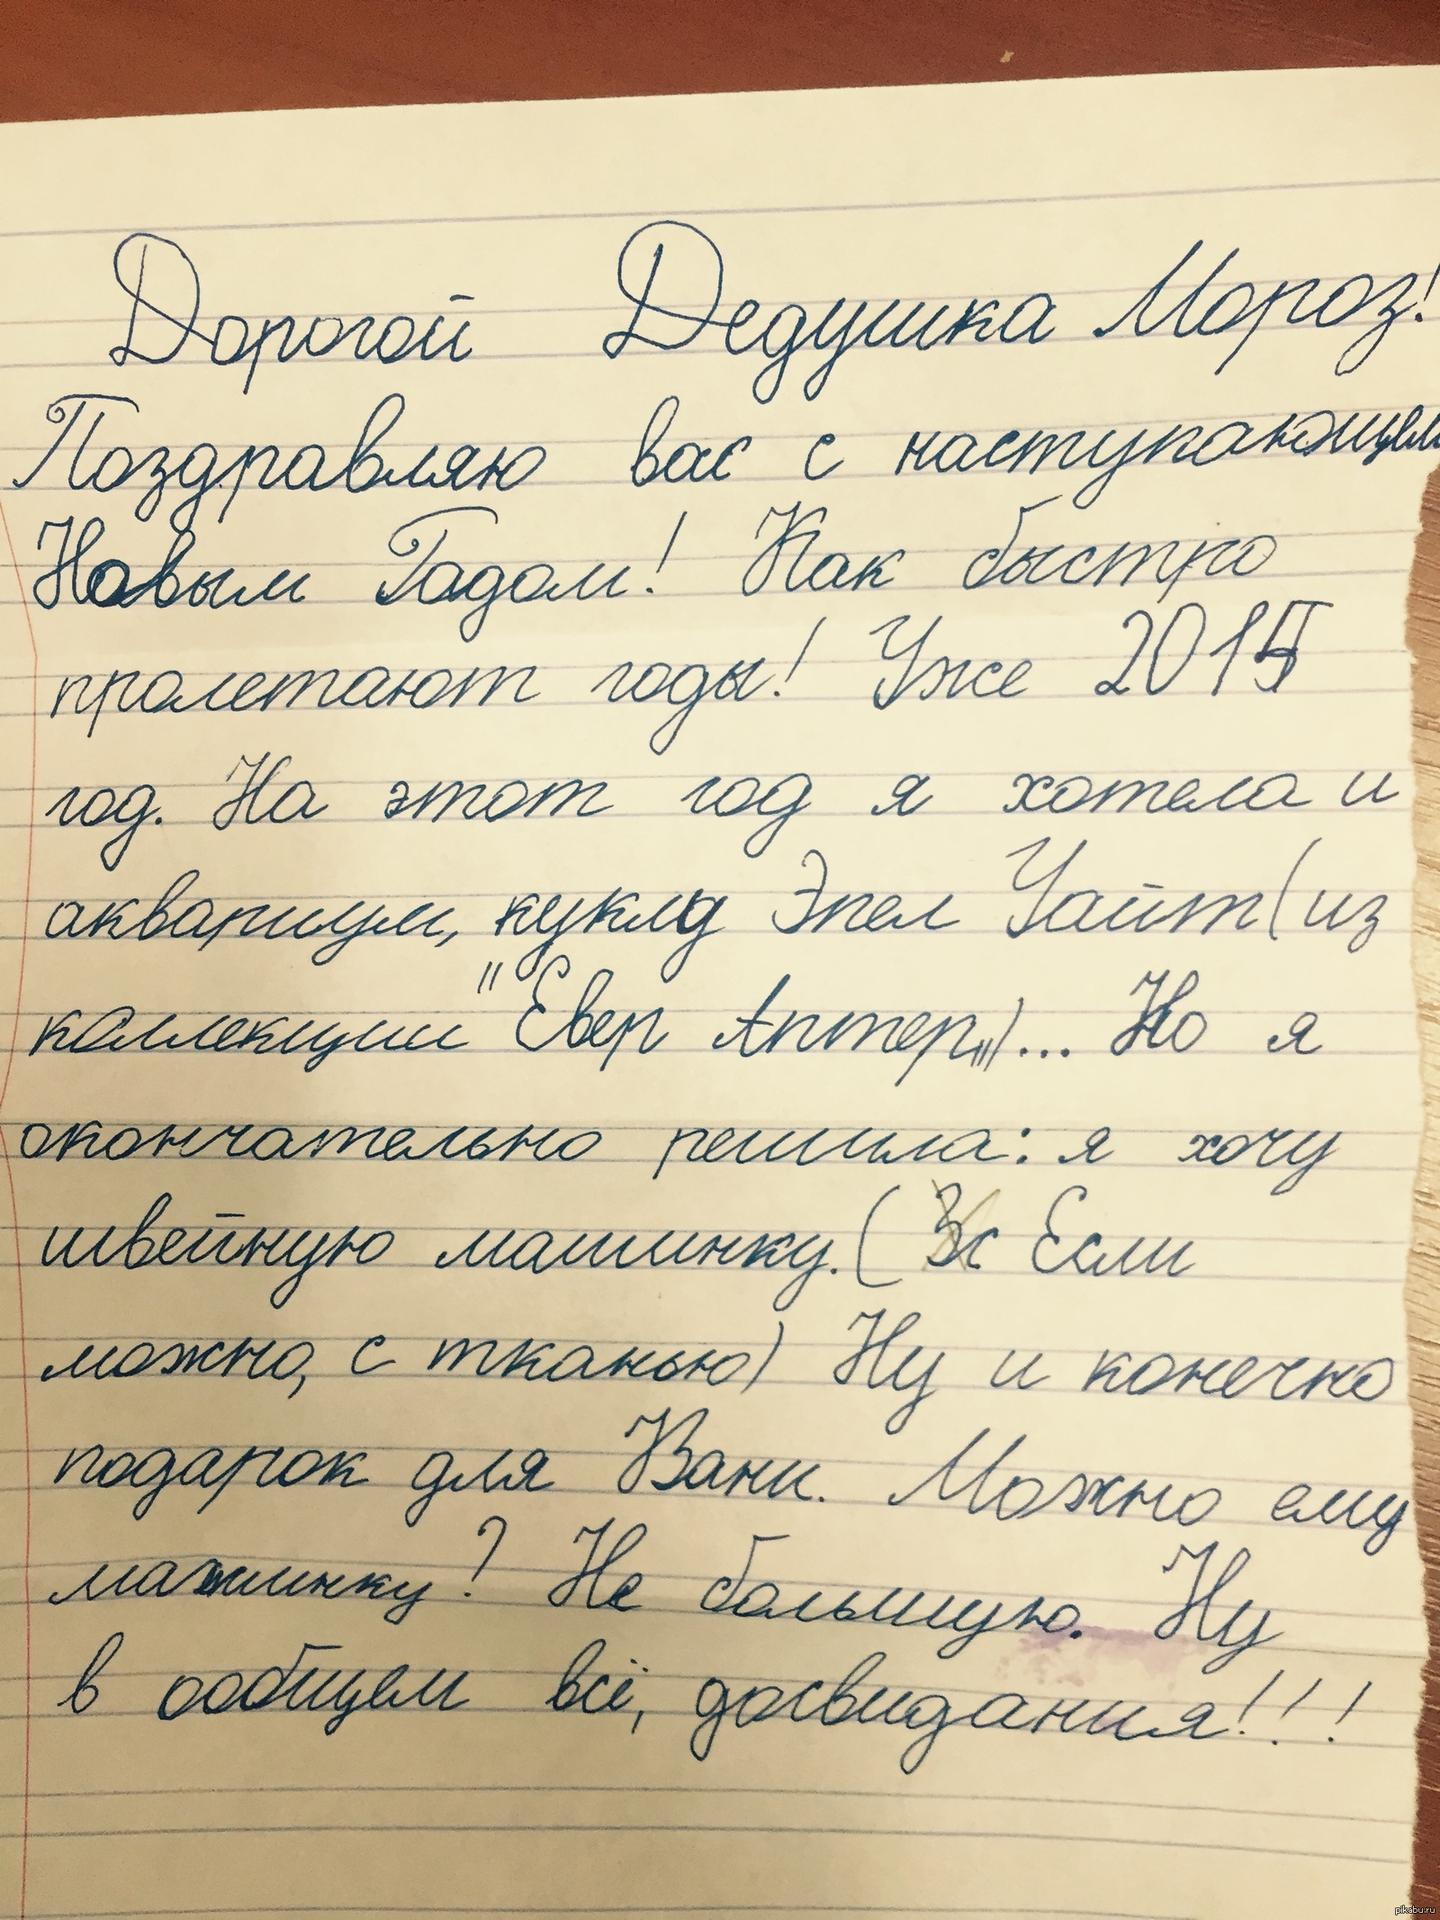 Дорогой Дедушка Мороз!
Поздравляю вас с наступающим
Новым Годом! Как быстро
пролетают годы! Уже 2015
год. На этот год я хотела и
аквариум, куклу Эпел Уайт (из
коллекции "Евер Аптер")... Но я
окончательно решила: я хочу
швейную машинку. ( Если
можно, с тканью) Ну и конечно
подарок для Вани. Можно ему
машинку? Не большую. Ну
в ообщем всё, досвидания!!!
pikabu.ru